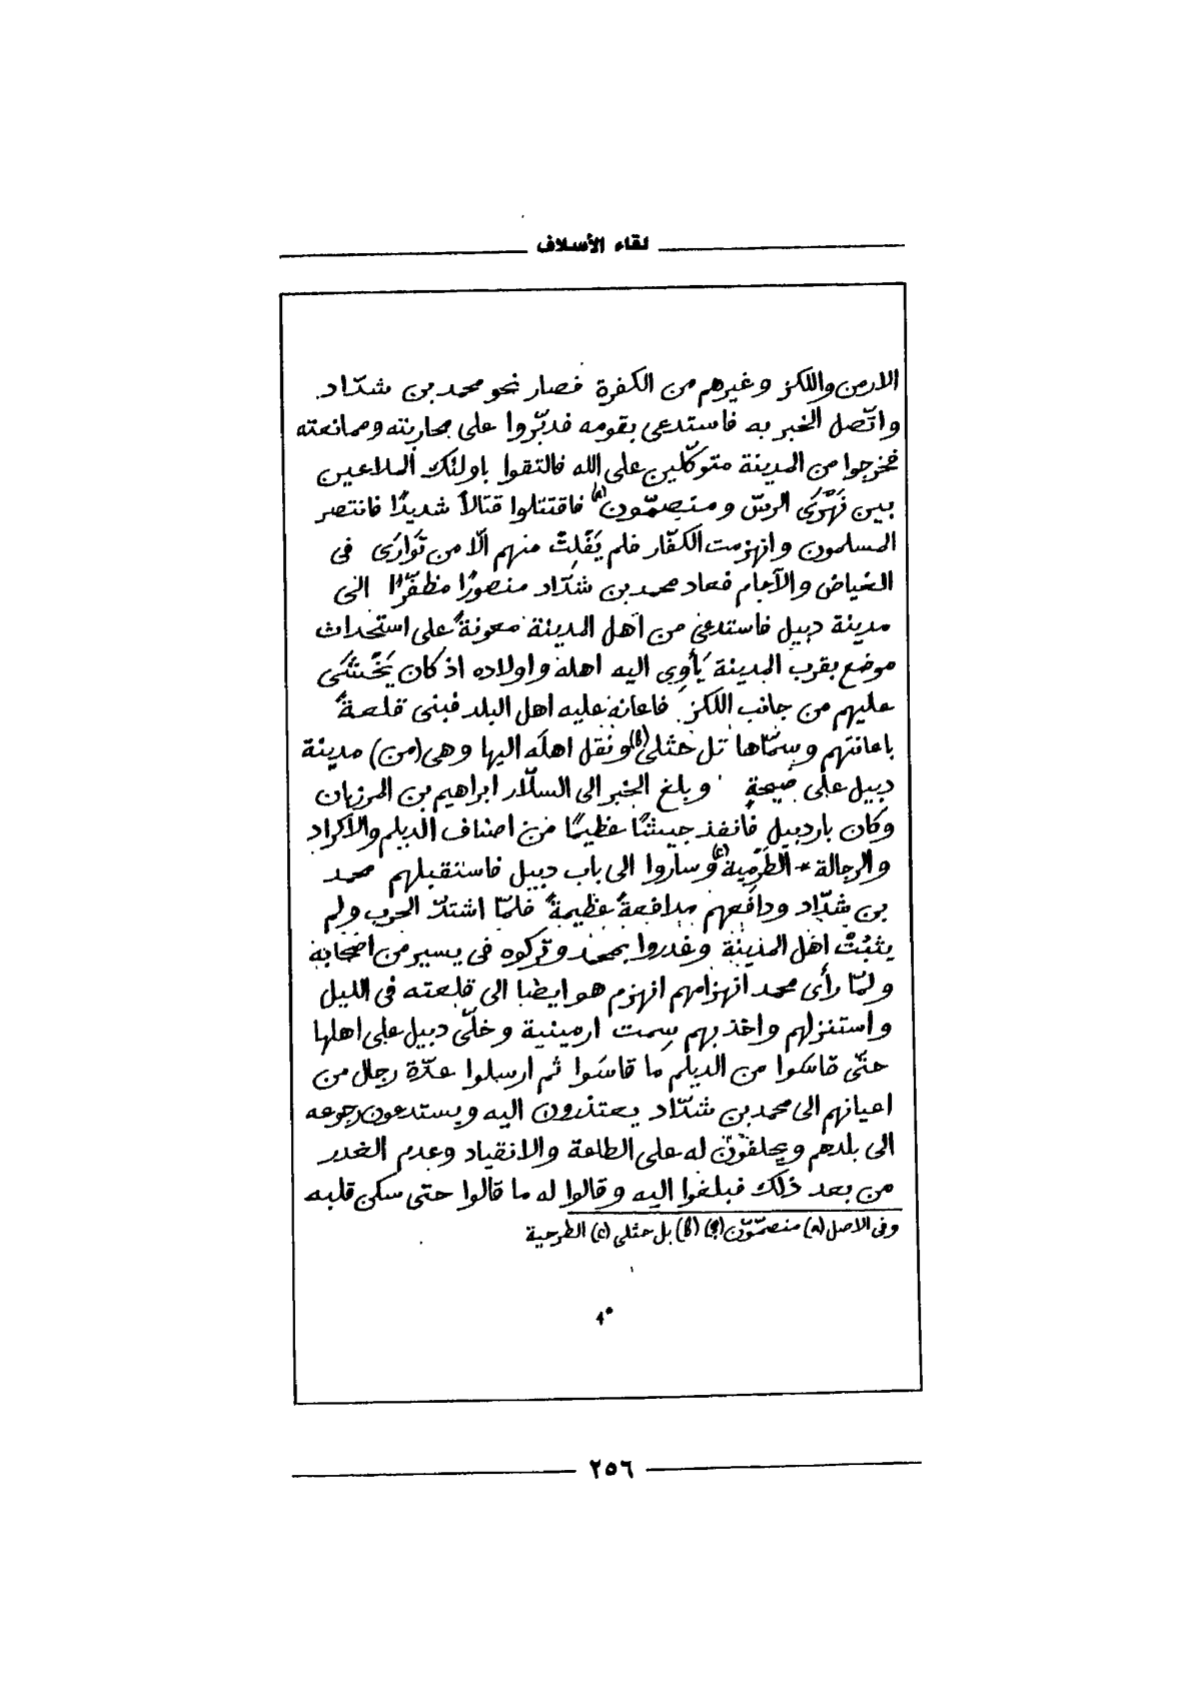 لقاء الأسلاف
الارمن واللكز وغيرهم من الكفرة فصار نحو محمد بن شدّاد.
واتّصل الخبر به فاستدعى بقومه فدبّروا على محاربته وممانعته
فخرجوا من المدينة متوكّلين على الله فالتقوا باولئك الملاعين
بين نَهْرَى الرسّ ومتصمّون(a) فاقتتلوا قتالاً شديدًا فانتصر
المسلمون وانهزمت الكفّار فلم يَفْلِتْ منهم الّا من تَوَارَى فى
الغياض والآجام فعاد محمد بن شدّاد منصورًا مظفّرًا الى
مدينة دبيل فاستدعى من اهل المدينة معونةً على استحداث
موضع بقرب المدينة يَأوِى اليه اهله واولاده اذ كان يَخْشَى
عليهم من جانب اللكز فاعانه عليه اهل البلد فبنى قلعةً
باعانتهم وسمّاها تل حثلى(b) ونقل اهلَه اليها وهى (من) مدينة
دبيل على صيحةٍ وبلغ الخبر الى السلّار ابراهيم بن المرزبان
وكان باردبيل فانفذ جيشًا عظيمًا من اصناف الديلم والاكراد
والرجالة * الطَرْمية(c) وساروا الى باب دبيل فاستقبلهم محمد
بن شدّاد ودافعهم مدافعةً عظيمةً فلمّا اشتدّ الحرب ولم
يثبُتْ اهل المدينة وغدروا بمحمد وتركوه فى يسير من اصحابه
ولمّا رأى محمد انهزامهم انهزم هو ايضا الى قلعته فى الليل
واستنزلهم واخذ بهم سمت ارمينية وخلّى دبيل على اهلها
حتّى قاسَوا من الديلم ما قاسَوا ثم ارسلوا عدّة رجال من
اعيانهم الى محمد بن شدّاد يعتذرون اليه ويستدعون رجوعه
الى بلدهم ويحلفون له على الطاعة والانقياد وعدم الغدر
من بعد ذلك فبلغوا اليه وقالوا له ما قالوا حتى سكن قلبه
وفى الاصل (a) منصمّون (b) بل حثلى (c) الطرحية
٢٥٦